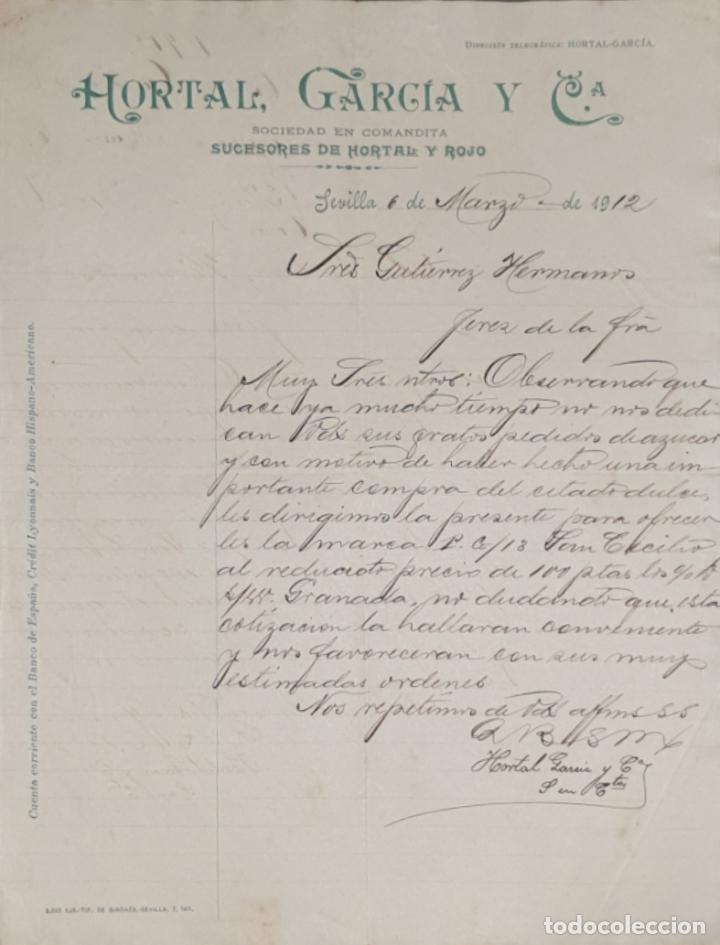 DIRECCIÓN TELEGRÁFICA: HORTAL-GARCÍA.
HORTAL, GARCÍA Y C.A
SOCIEDAD EN COMANDITA
SUCESORES DE HORTAL Y ROJO
Sevilla 6 de Marzo de 1912
Sres Gutiérrez Hermanos
Jerez de la fra
Muy Sres ntros: Observando que
hace ya mucho tiempo no nos dedi
can Vds sus gratos pedidos de azucar
y con motivo de haber hecho una im
portante compra del citado dulce,
les dirigimos la presente para ofrecer
les la marca P. G/13 San Cecilio
al reducido precio de 100 ptas los % k
s/w. Granada, no dudando que esta
cotización la hallaran conveniente
y nos favoreceran con sus muy
estimadas ordenes
Nos repetimos de Vds affms SS
Q B S M
Hortal Garcia y Ca
S en Cta
Cuenta corriente con el Banco de España, Crédit Lyonnais y Banco Hispano-Americano.
TIP. DE GIRONÉS.-SEVILLA.
todocoleccion